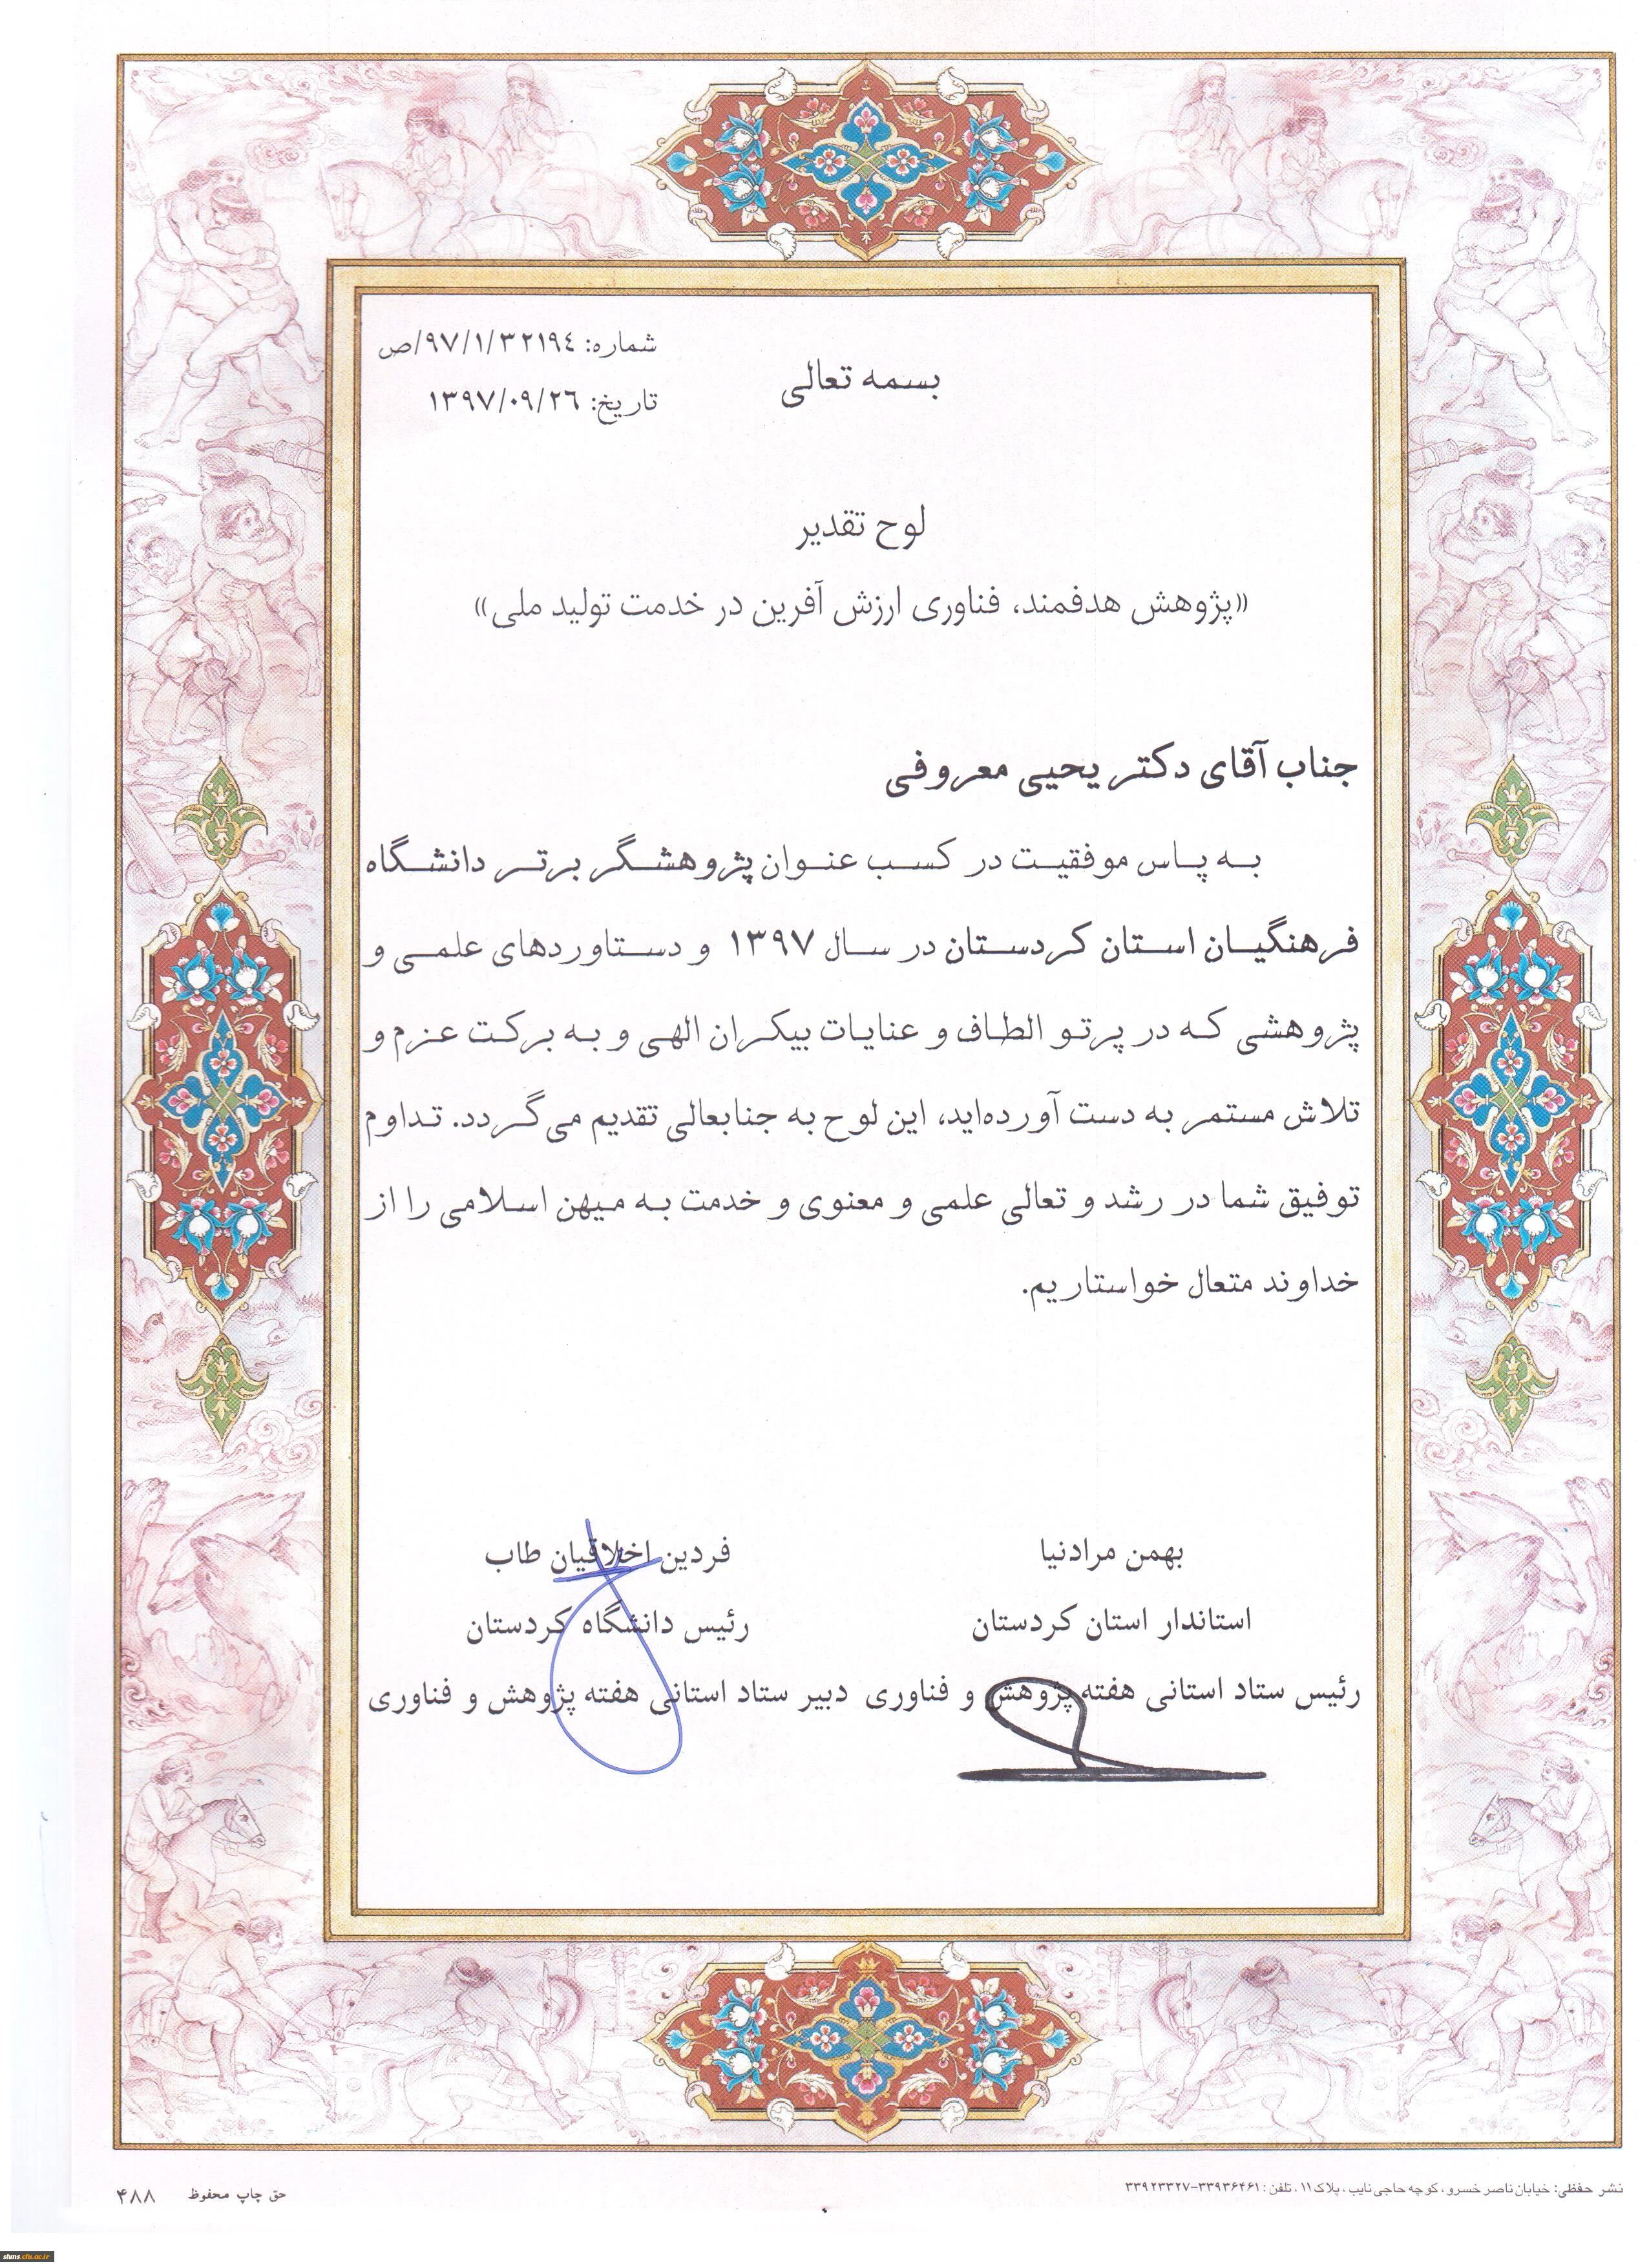 شماره: ۹۷/۱/۳۲۱۹۴/ص
تاریخ: ۱۳۹۷/۰۹/۲۶
بسمه تعالی
لوح تقدیر
«پژوهش هدفمند، فناوری ارزش آفرین در خدمت تولید ملی»
جناب آقای دکتر یحیی معروفی
به پاس موفقیت در کسب عنوان پژوهشگر برتر دانشگاه
فرهنگیان استان کردستان در سال ۱۳۹۷ و دستاوردهای علمی و
پژوهشی که در پرتو الطاف و عنایات بیکران الهی و به برکت عزم و
تلاش مستمر به دست آورده‌اید، این لوح به جنابعالی تقدیم می‌گردد. تداوم
توفیق شما در رشد و تعالی علمی و معنوی و خدمت به میهن اسلامی را از
خداوند متعال خواستاریم.
بهمن مرادنیا
استاندار استان کردستان
رئیس ستاد استانی هفته پژوهش و فناوری
فردین اخلاقیان طاب
رئیس دانشگاه کردستان
دبیر ستاد استانی هفته پژوهش و فناوری
نشر حفظی: خیابان ناصر خسرو، کوچه حاجی نایب، پلاک ۱۱، تلفن: ۳۳۹۳۶۴۶۱-۳۳۹۲۳۳۲۷
حق چاپ محفوظ
۴۸۸
shms.cfu.ac.ir